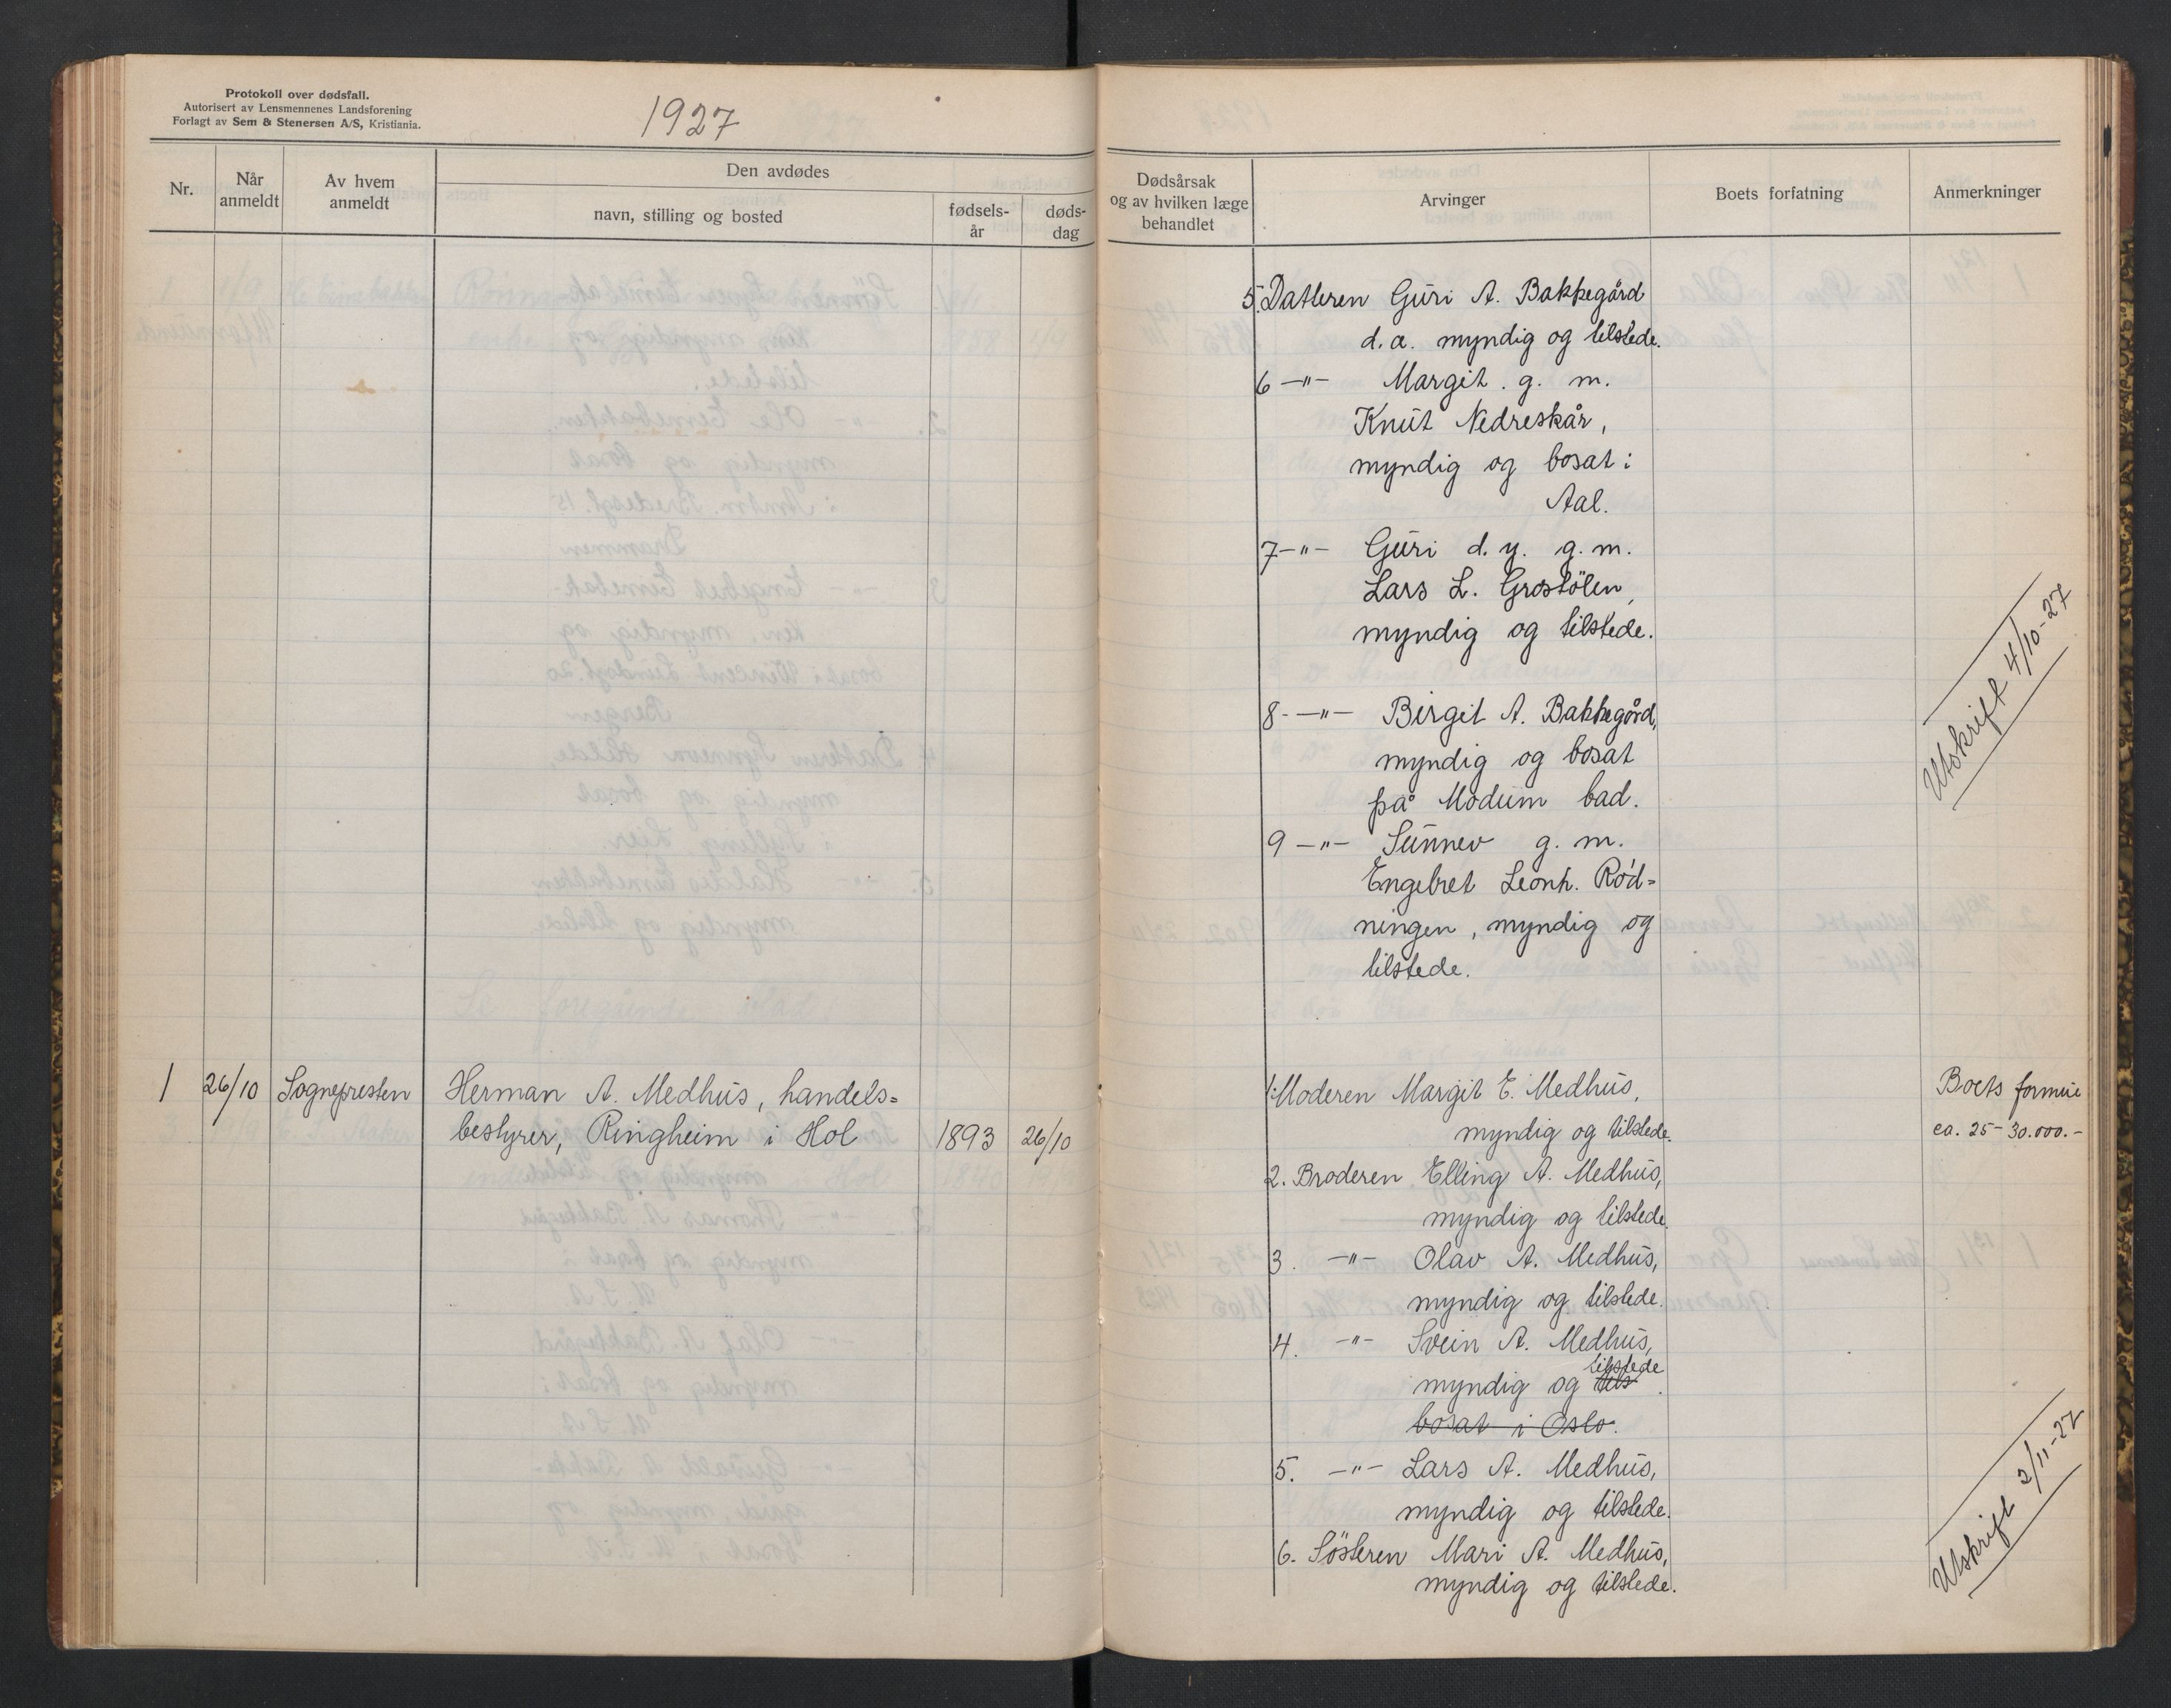 Protokoll over dødsfall.
Autorisert av Lensmennenes Landsforening
Forlagt av Sem & Stenersen A/S, Kristiania.
1927
Nr.
Når anmeldt
Av hvem anmeldt
Den avdødes
navn, stilling og bosted
fødsels-år
døds-dag
Dødsårsak og av hvilken læge behandlet
Arvinger
Boets forfatning
Anmerkninger
5. Datteren Guri A. Bakkegård
d.æ. myndig og tilstede.
6 —"— Margit . g. m.
Knut Nedreskår,
myndig og bosat i
Aal.
7 —"— Guri d. y. g. m.
Lars L. Grostölen,
myndig og tilstede.
8 —"— Birgit A. Bakkegård,
myndig og bosat
på Modum bad.
9 —"— Sunnev g. m.
Engebret Leonh. Rød=
ningen, myndig og
tilstede.
Utskrift 4/10-27
Se foregående blad
1 26/10 Sognepresten Herman A. Medhus, handels=
bestyrer, Ringheim i Hol 1893 26/10
1. Moderen Margit E. Medhus,
myndig og tilstede.
2. Broderen Elling A. Medhus,
myndig og tilstede.
3. —"— Olav A. Medhus,
myndig og tilstede.
4. —"— Svein A. Medhus,
tilstede
myndig og tils.
bosat i Oslo.
5. —"— Lars A. Medhus,
myndig og tilstede.
6. Søsteren Mari A. Medhus,
myndig og tilstede.
Boets formue
ca. 25-30.000.-
Utskrift 2/11-27